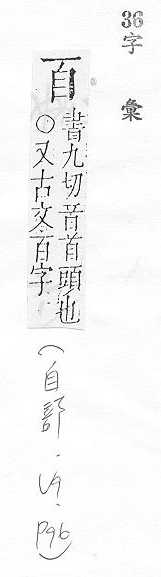 36字彙
𦣻
書九切音首頭也
○又古文百字
(自部. .P96)